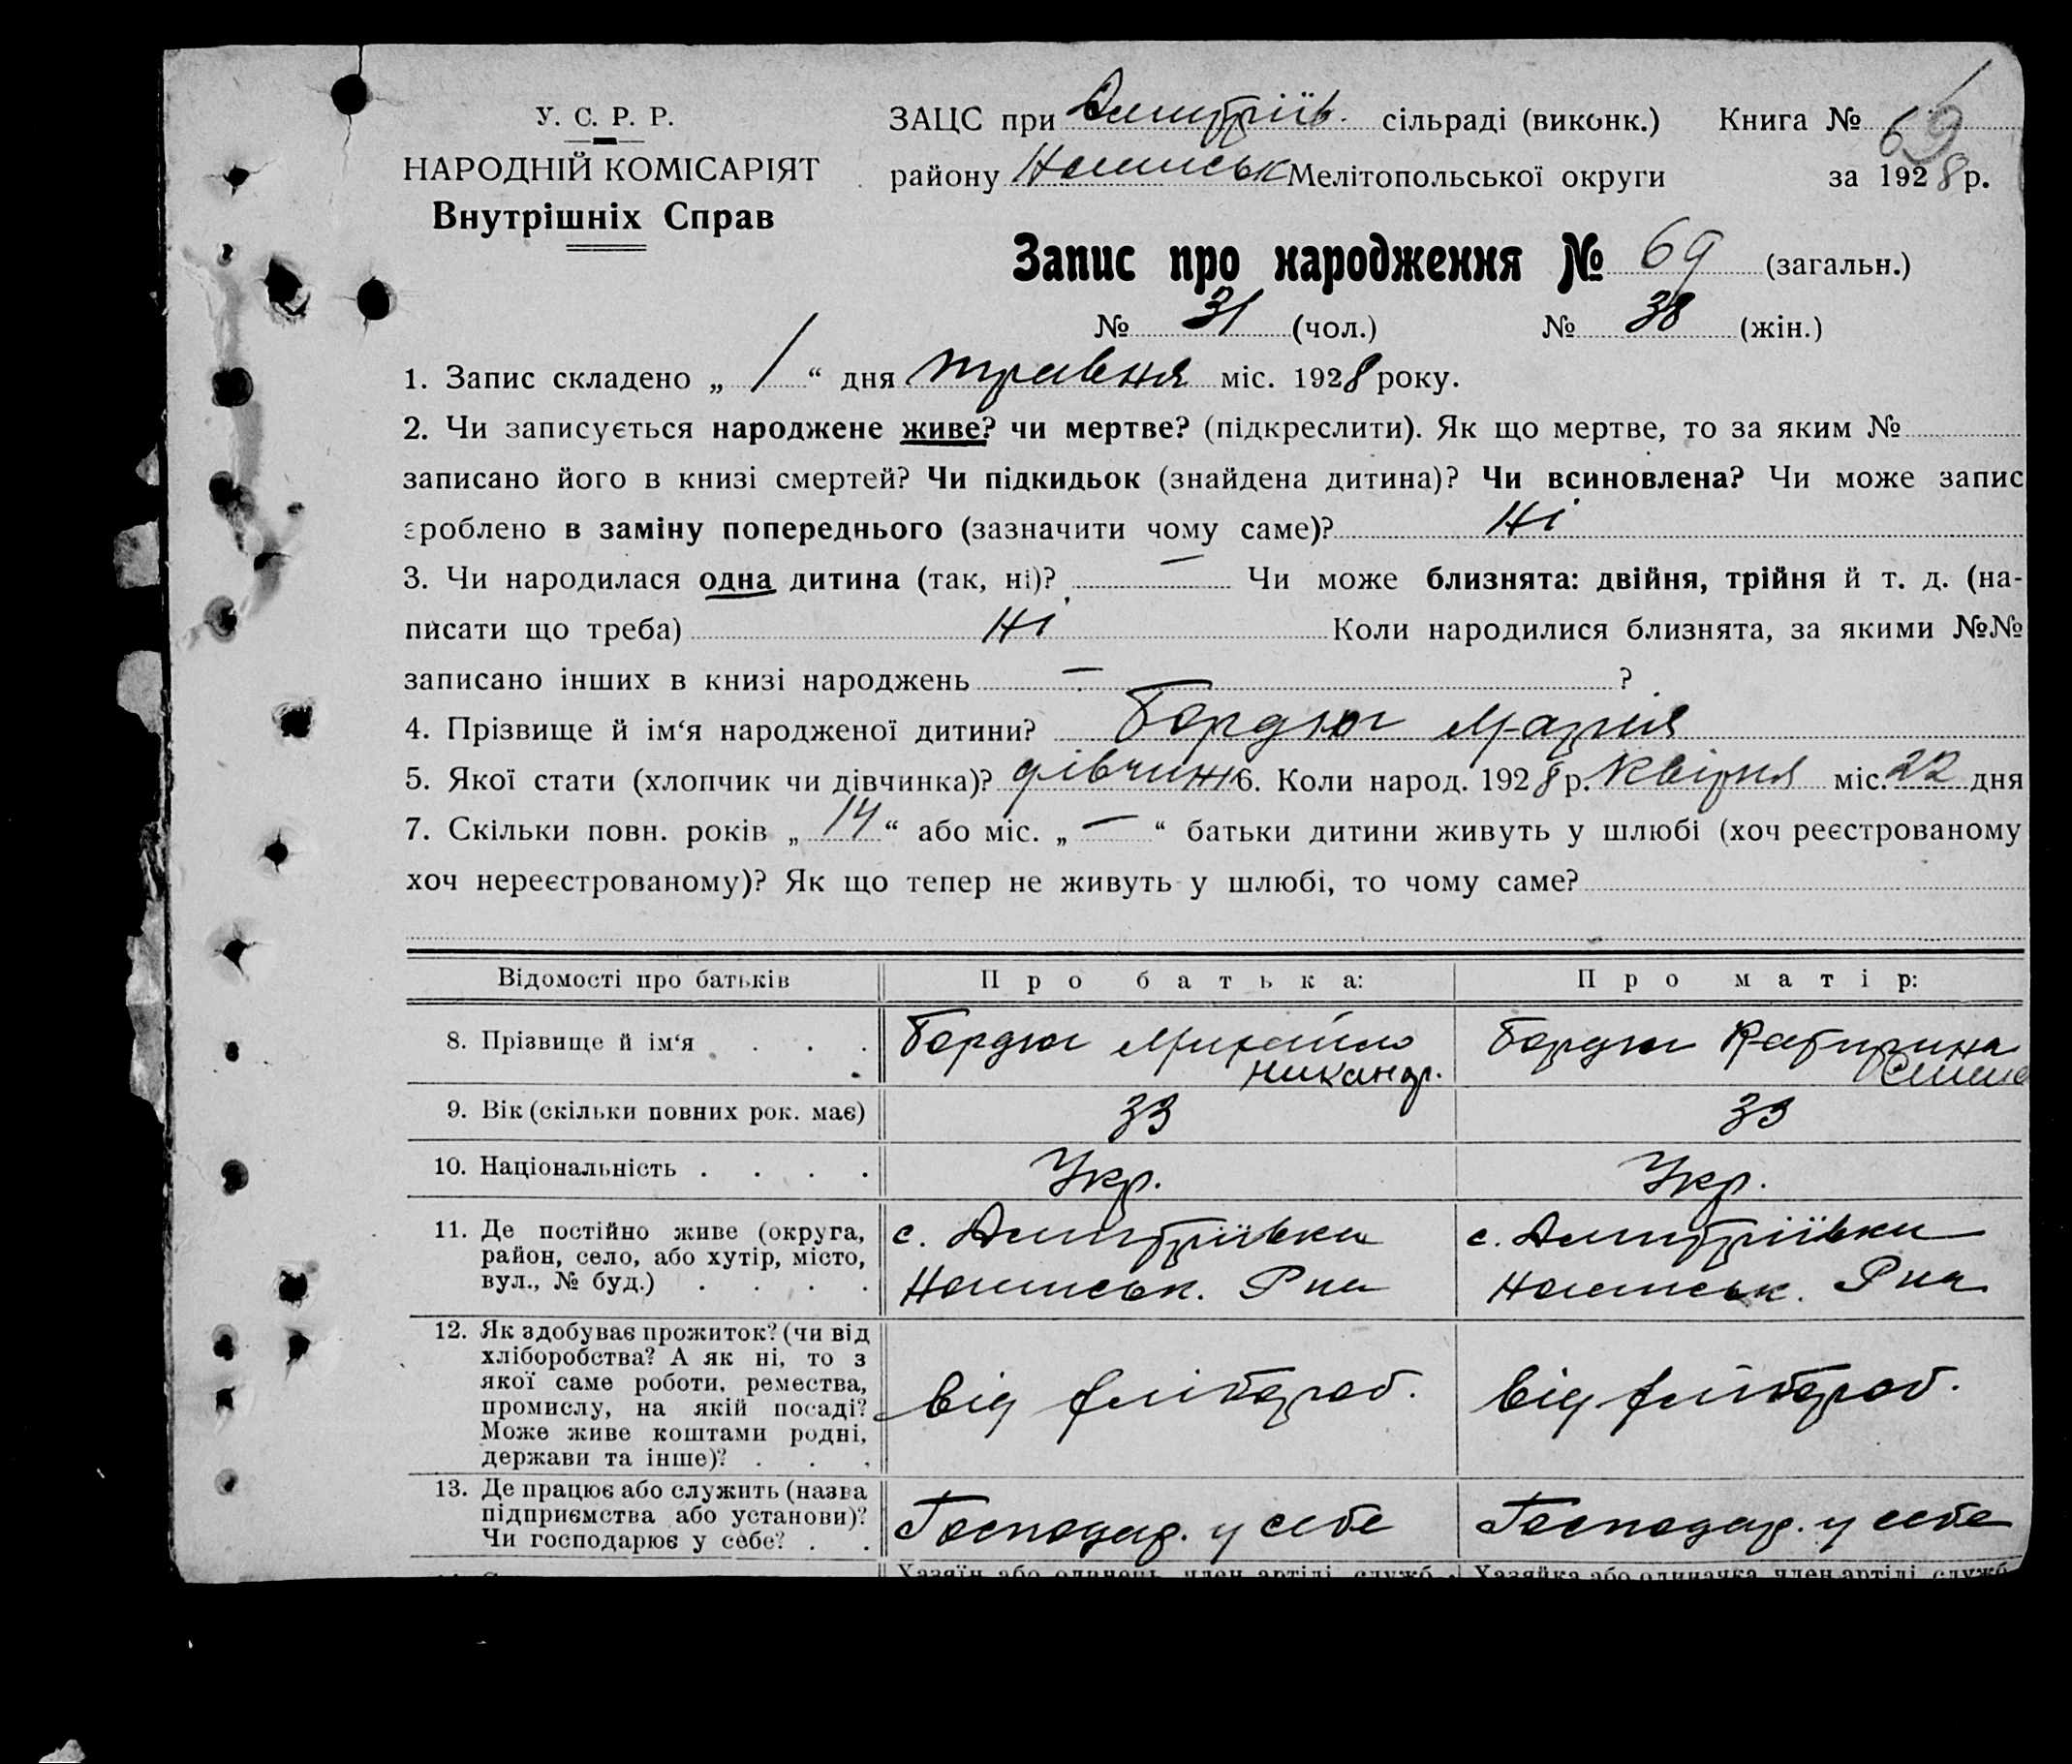 У. С. Р. Р.
НАРОДНІЙ КОМІСАРІЯТ
Внутрішніх Справ
ЗАЦС при Дмитріїв. сільраді (виконк.) Книга №
району Мелітопольської округи за 1928 р.
Запис про народження № 69 (загальн.)
№ 31 (чол.) № 38 (жін.)
1. Запис складено „ 1 “ дня травня міс. 1928 року.
2. Чи записується народжене живе? чи мертве? (підкреслити). Як що мертве, то за яким №
записано його в книзі смертей? Чи підкидьок (знайдена дитина)? Чи всиновлена? Чи може запис
зроблено в заміну попереднього (зазначити чому саме)? Ні
3. Чи народилася одна дитина (так, ні)? — Чи може близнята: двійня, трійня й т. д. (на-
писати що треба) Ні Коли народилися близнята, за якими №№
записано інших в книзі народжень — ?
4. Прізвище й ім‘я народженої дитини? Бордюг Марія
5. Якої стати (хлопчик чи дівчинка)? дівчинк 6. Коли народ. 1928 р. квітня міс. 22 дня
7. Скільки повн. років „ 14 “ або міс. „ — “ батьки дитини живуть у шлюбі (хоч реєстрованому
хоч нереєстрованому)? Як що тепер не живуть у шлюбі, то чому саме?
Відомості про батьків Про батька: Про матір:
8. Прізвище й ім‘я . . . Бордюг Михайло Никандр. Бордюг Катирина
9. Вік (скільки повних рок. має) 33 33
10. Національність . . . . Укр. Укр.
11. Де постійно живе (округа,
район, село, або хутір, місто,
вул., № буд.) . . . .
с. Дмитріївка
Р на
с. Дмитріївка
Р на
12. Як здобуває прожиток? (чи від
хліборобства? А як ні, то з
якої саме роботи, ремества,
промислу, на якій посаді?
Може живе коштами родні,
держави та інше)? . . .
від хлібороб.
від хлібороб.
13. Де працює або служить (назва
підприємства або установи)?
Чи господарює у себе? . .
Господар. у себе
Господар. у себе
Хазяїн або одинець, член артілі, служб.
Хазяйка або одиначка, член артілі, служб